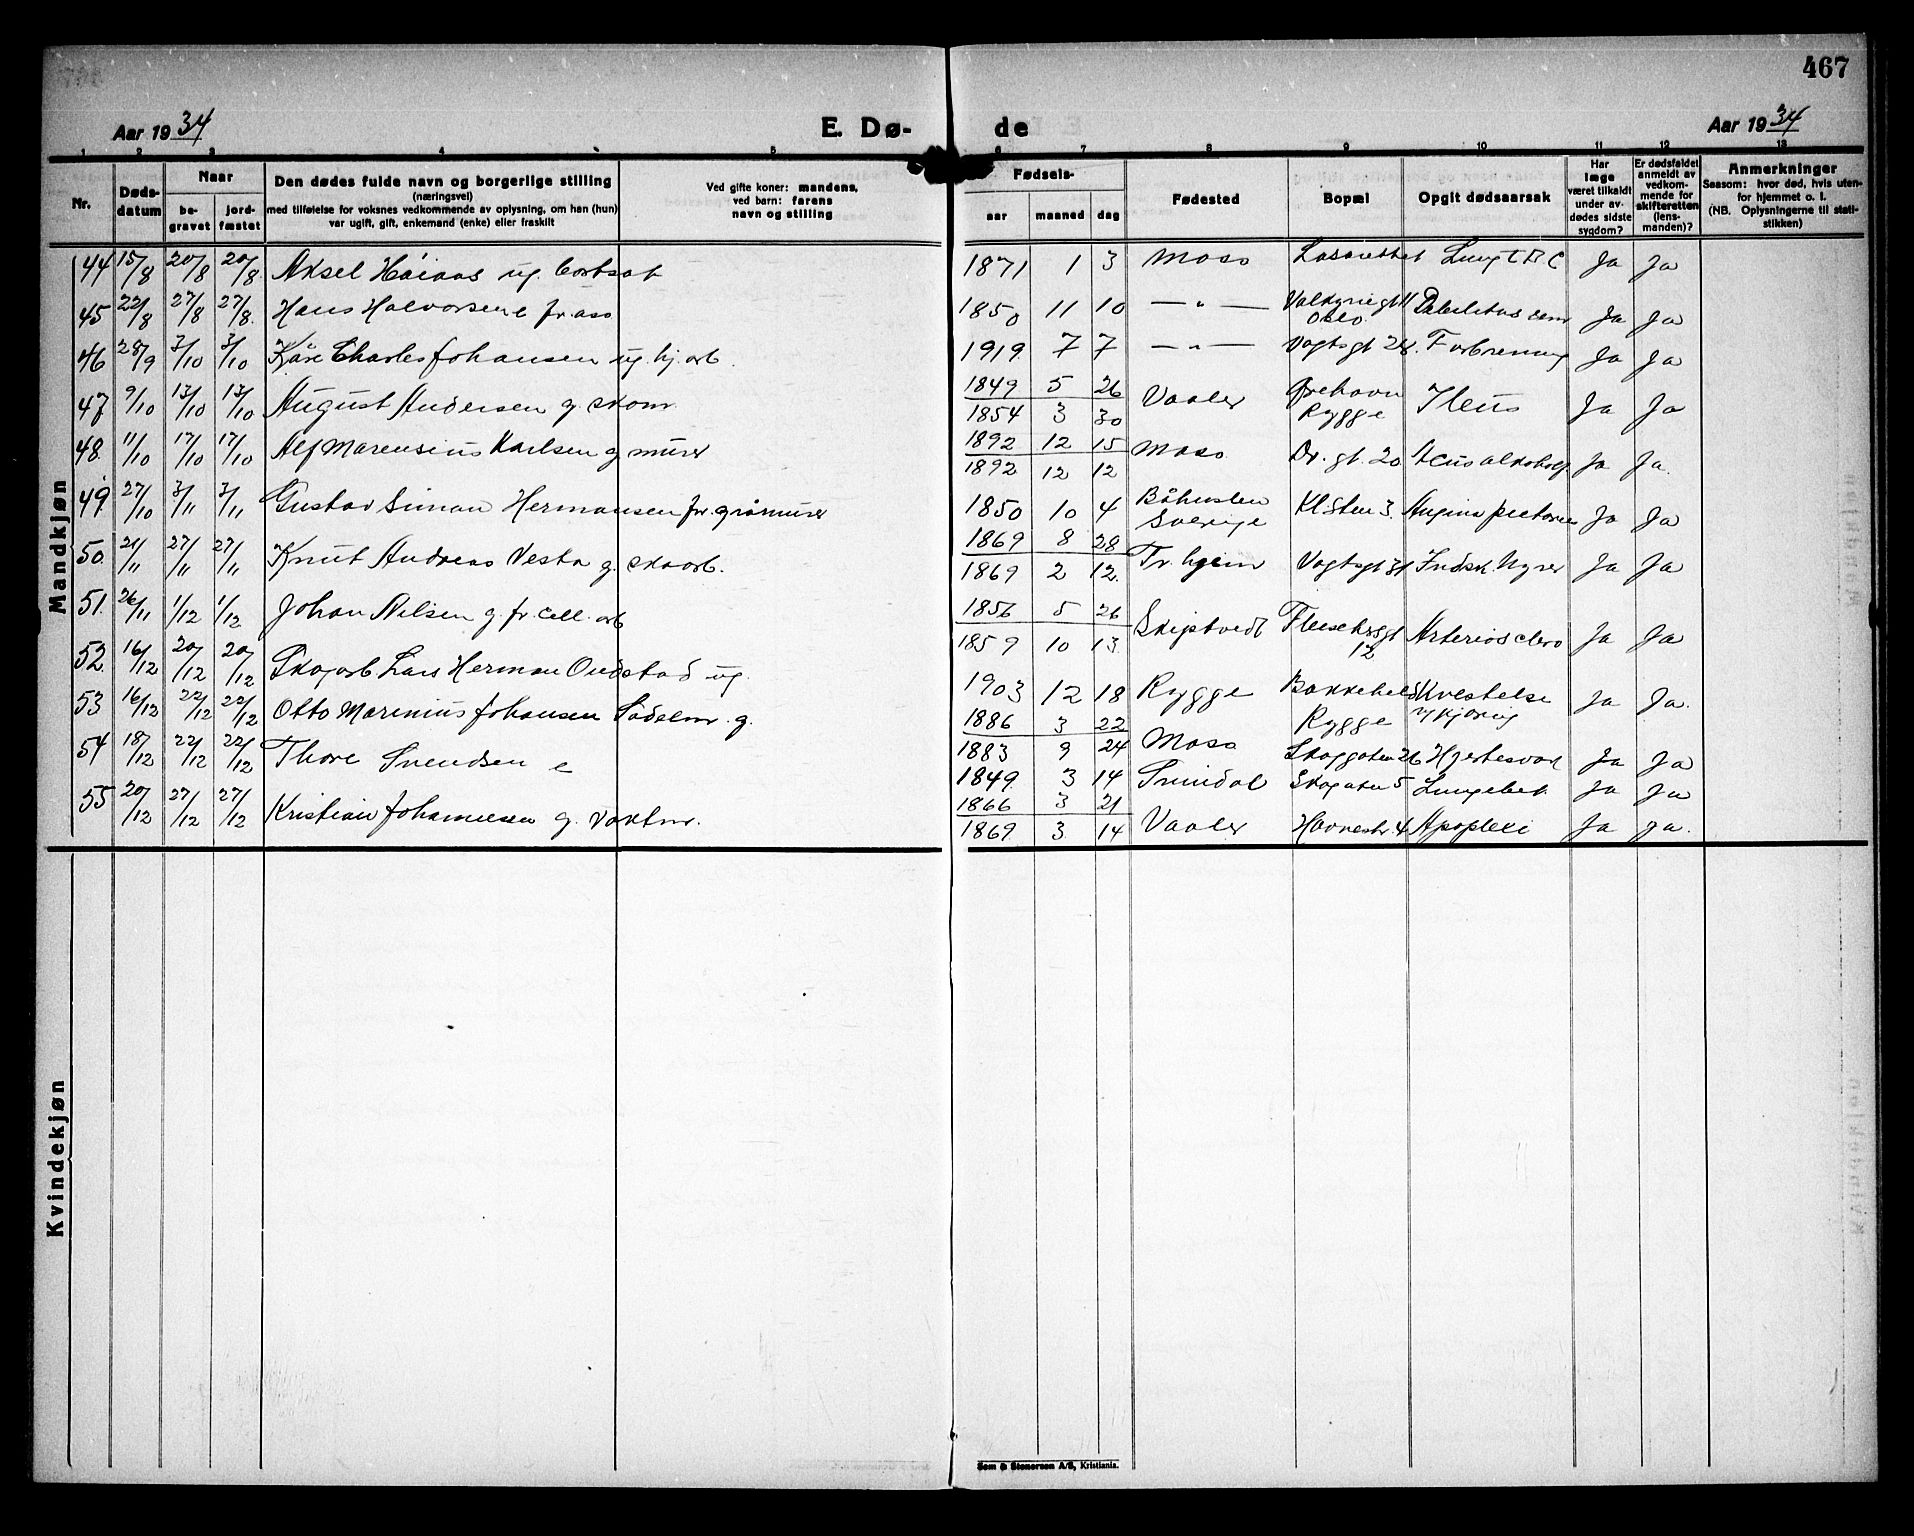 467
Aar 1934
E. Dø-
de
Aar 1934
1 2 3 4 5 6 7 8 9 10 11 12 13
Nr.
Døds-
datum
Naar
be-
gravet
jord-
fæstet
Den dødes fulde navn og borgerlige stilling
(næringsvei)
med tilføielse for voksnes vedkommende av oplysning, om han (hun)
var ugift, gift, enkemand (enke) eller fraskilt
Ved gifte koner: mandens,
ved barn: farens
navn og stilling
Fødsels-
aar maaned dag
Fødested
Bopæl
Opgit dødsaarsak
Har
læge
været tilkaldt
under av-
dødes sidste
sygdom?
Er dødsfaldet
anmeldt av
vedkom-
mende for
skifteretten
(lens-
manden)?
Anmerkninger
Saasom: hvor død, hvis uten-
for hjemmet o. l.
(NB. Oplysningerne til stati-
stikken)
Mandkjøn
44 15/8 20/8 20/8 Aksel ug. 1871 1 3 Moss Ja Ja
45 22/8 27/8 27/8 Hans Halvorsen e fr. ass 1850 11 10 — " — Valkyriegt 11 Oslo Ja Ja
46 28/9 3/10 3/10 Kåre Charles Johansen ug. hj. arb. 1919 7 7 — " — Vogtsgt 28. Forbrenning Ja Ja
47 9/10 13/10 13/10 August Andersen g. skom 1849 5 26
1854 3 30 Vaaler Ørehavn Rygge Ileus Ja Ja
48. 11/10 17/10 17/10 Alf Marensius Karlsen g murer 1892 12 15
1892 12 12 Moss Dr. gt. 20 Ja Ja.
49. 27/10 3/11 3/11 Gustav Simon Hermansen fr. gråmurer 1850 10 4 Båhuslen Sverige Kl. Sten 3. Angina pectoris Ja Ja
50. 21/11 27/11 27/11 Knut Andreas Vesta g. skoarb. 1869 8 28
1869 2 12. Tr.hjem Vogtsgt 31 Indsk. Nyrer Ja Ja
51. 26/11 1/12 1/12 Johan Nilsen g. fr. cell. arb 1856 5 26
1859 10 13. Skiptvedt 12 Arterios clero Ja Ja
52. 16/12 20/12 20/12 Skogarb Lars Herman Ondstad ug. 1903 12 18 Rygge Bakkeheld Rygge Kvestelse v/ kjøring Ja Ja.
53 16/12 22/12 22/12 Otto Marinius Johansen Sadelm. g. 1886 3 22
1883 9 24 Moss Skoggaten 26 Hjertesvak Ja Ja
54 18/12 22/12 22/12 Thore Svendsen e 1849. 3 14 Skogaten 5 Lungebet. Ja Ja
55 20/12 27/12 27/12 Kristian Johannesen g. Vaktm. 1866 3 21
1869. 3. 14 Vaaler Havnestr. 4 Apoplexi Ja Ja.
Kvindekjøn
Sem & Stenersen A/S, Kristiania.